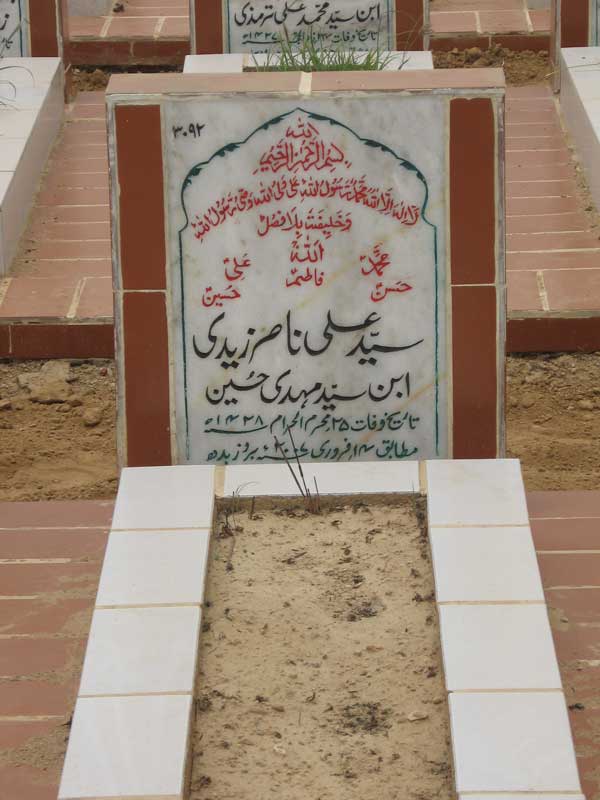 ابن سید محمد علی ترمذی
۳۰۹۲
الله
بسم الرحمن الرحیم
لا اله الا الله محمد رسول الله علی ولی الله وصی رسول الله
وخلیفته بلا فصل
الله
محمد علی
فاطمہ
حسن حسین
سید علی ناصر زیدی
ابن سید مہدی حسین
تاریخ وفات ۲۵ محرم الحرام ۱۴۲۸ھ
مطابق ۱۴ فروری ۲۰۰۷ء بروز بدھ